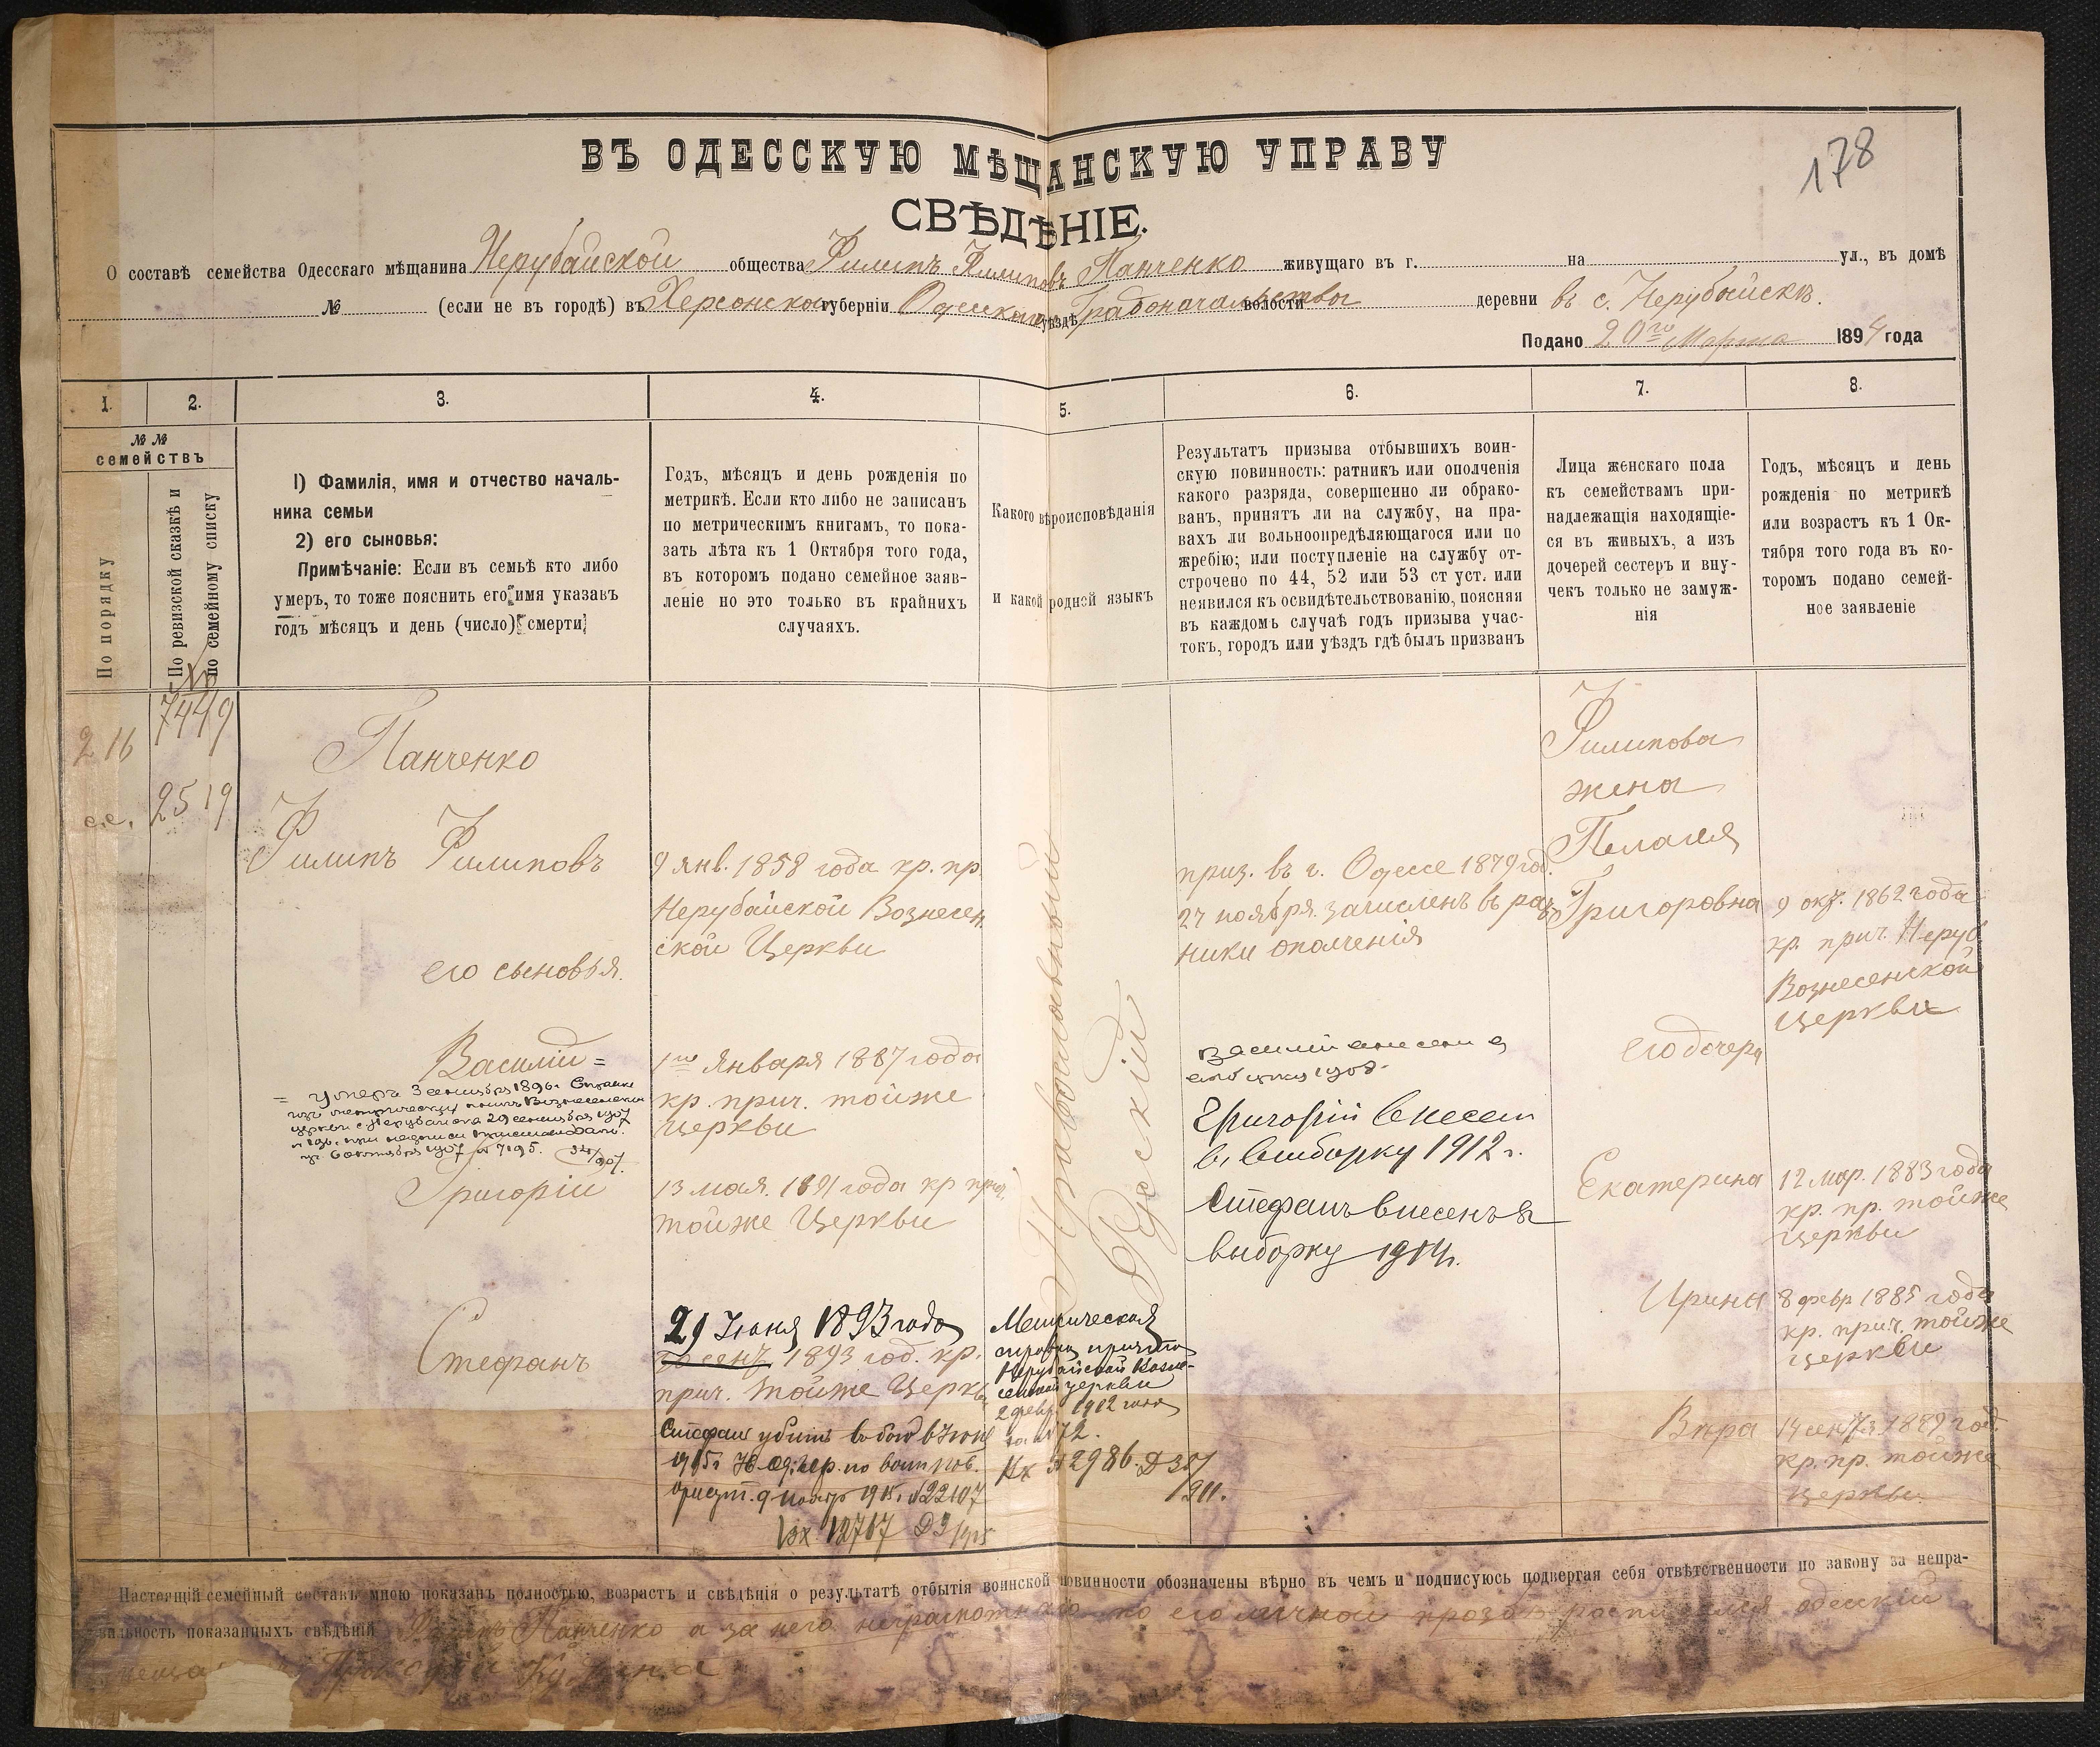 178
ВЪ ОДЕССКУЮ МѢЩАНСКУЮ УПРАВУ
СВѢДѢНІЕ.
О составѣ семейства Одесскаго мѣщанина Нерубайской общества Филипъ Филиповъ Панченко живущаго въ г. на ул., въ домѣ
№ (если не въ городѣ) въ Херсонской губерніи Одесскаго уѣздѣ Градоначальства волости деревни въ с. Нерубайскъ.
Подано 20го Марта 1894 года
1.
2.
3.
4.
5.
6.
7.
8.
№ №
семействъ
По порядку
По ревизской сказкѣ и
по семейному списку
1) Фамилія, имя и отчество началь-
ника семьи
2) его сыновья:
Примѣчаніе: Если въ семьѣ кто либо
умеръ, то тоже пояснить его имя указавъ
годъ мѣсяцъ и день (число) смерти
Годъ, мѣсяцъ и день рожденія по
метрикѣ. Если кто либо не записанъ
по метрическимъ книгамъ, то пока-
зать лѣта къ 1 Октября того года,
въ которомъ подано семейное заяв-
леніе но это только въ крайнихъ
случаяхъ.
Какого вѣроисповѣданія
и какой родной языкъ
Результатъ призыва отбывшихъ воин-
скую повинность: ратникъ или ополченія
какого разряда, совершенно ли обрако-
ванъ, принятъ ли на службу, на пра-
вахъ ли вольноопредѣляющагося или по
жребію; или поступленіе на службу от-
строчено по 44, 52 или 53 ст уст. или
неявился къ освидѣтельствованію, поясняя
въ каждомъ случаѣ годъ призыва учас-
токъ, городъ или уѣздъ гдѣ былъ призванъ
Лица женскаго пола
къ семействамъ при-
надлежащія находящіе-
ся въ живыхъ, а изъ
дочерей сестеръ и вну-
чекъ только не замуж-
нія
Годъ, мѣсяцъ и день
рожденія по метрикѣ
или возрастъ къ 1 Ок-
тября того года въ ко-
торомъ подано семей-
ное заявленіе
216
с.с.
№
7449
2519
Панченко
Филипъ Филиповъ
его сыновья.
Василій =
= Умеръ 3 сентября 1896 г. Справка
церкви с. Нерубайска 29 сентября 1907
6 октября 1907 № 7195. 34/907.
Григорій
Стефанъ
9 янв. 1858 года кр. пр.
Нерубайской Вознесен
ской Церкви
1го Января 1887 года
кр. прич. тойже
Церкви
13 мая. 1891 года кр прич.
тойже Церкви
29 Іюня 1893 года
сент. 1893 год. кр.
прич. тойже Церкв
Стефан убитъ въ бою въ Іюнѣ
1915 г. Од. гор. по воин. пов.
присут. 9 ноябр 1915 г. № 22107
Вх. 12767 Д3/915
Православный
Русскій
Метрическая
справка причта
Нерубайской Возне-
сенской церкви
2 февр. 1912 года
за № 72.
Вх № 2986. Д 35/
911.
приз. въ г. Одессе 1879 год.
27 ноября зачисленъ въ рат
ники ополченія
Василій внесенъ въ
выборку 1908.
Григорій внесен
въ выборку 1912 г.
Стефанъ внесенъ въ
выборку 1914 г.
Филипова
жена
Пелагея
Григоровна
его дочери
Екатерина
Ирина
Вѣра
9 окт. 1862 года
кр. прич. Неруб.
Вознесенской
Церкви
12 Мар. 1883 года
кр. пр. тойже
Церкви
8 февр 1885 года
кр. прич. тойже
Церкви
14 сент. 1889 год.
кр. пр. тойже
Церкви.
Настоящій семейный составъ мною показанъ полностью, возрастъ и свѣдѣнія о результатѣ отбытія воинской повинности обозначены вѣрно въ чемъ и подписуюсь подвергая себя отвѣтственности по закону за непра-
вильность показанныхъ свѣдѣній Филипъ Панченко а за него неграмотнаго по его личной прозьбѣ росписался одесскій